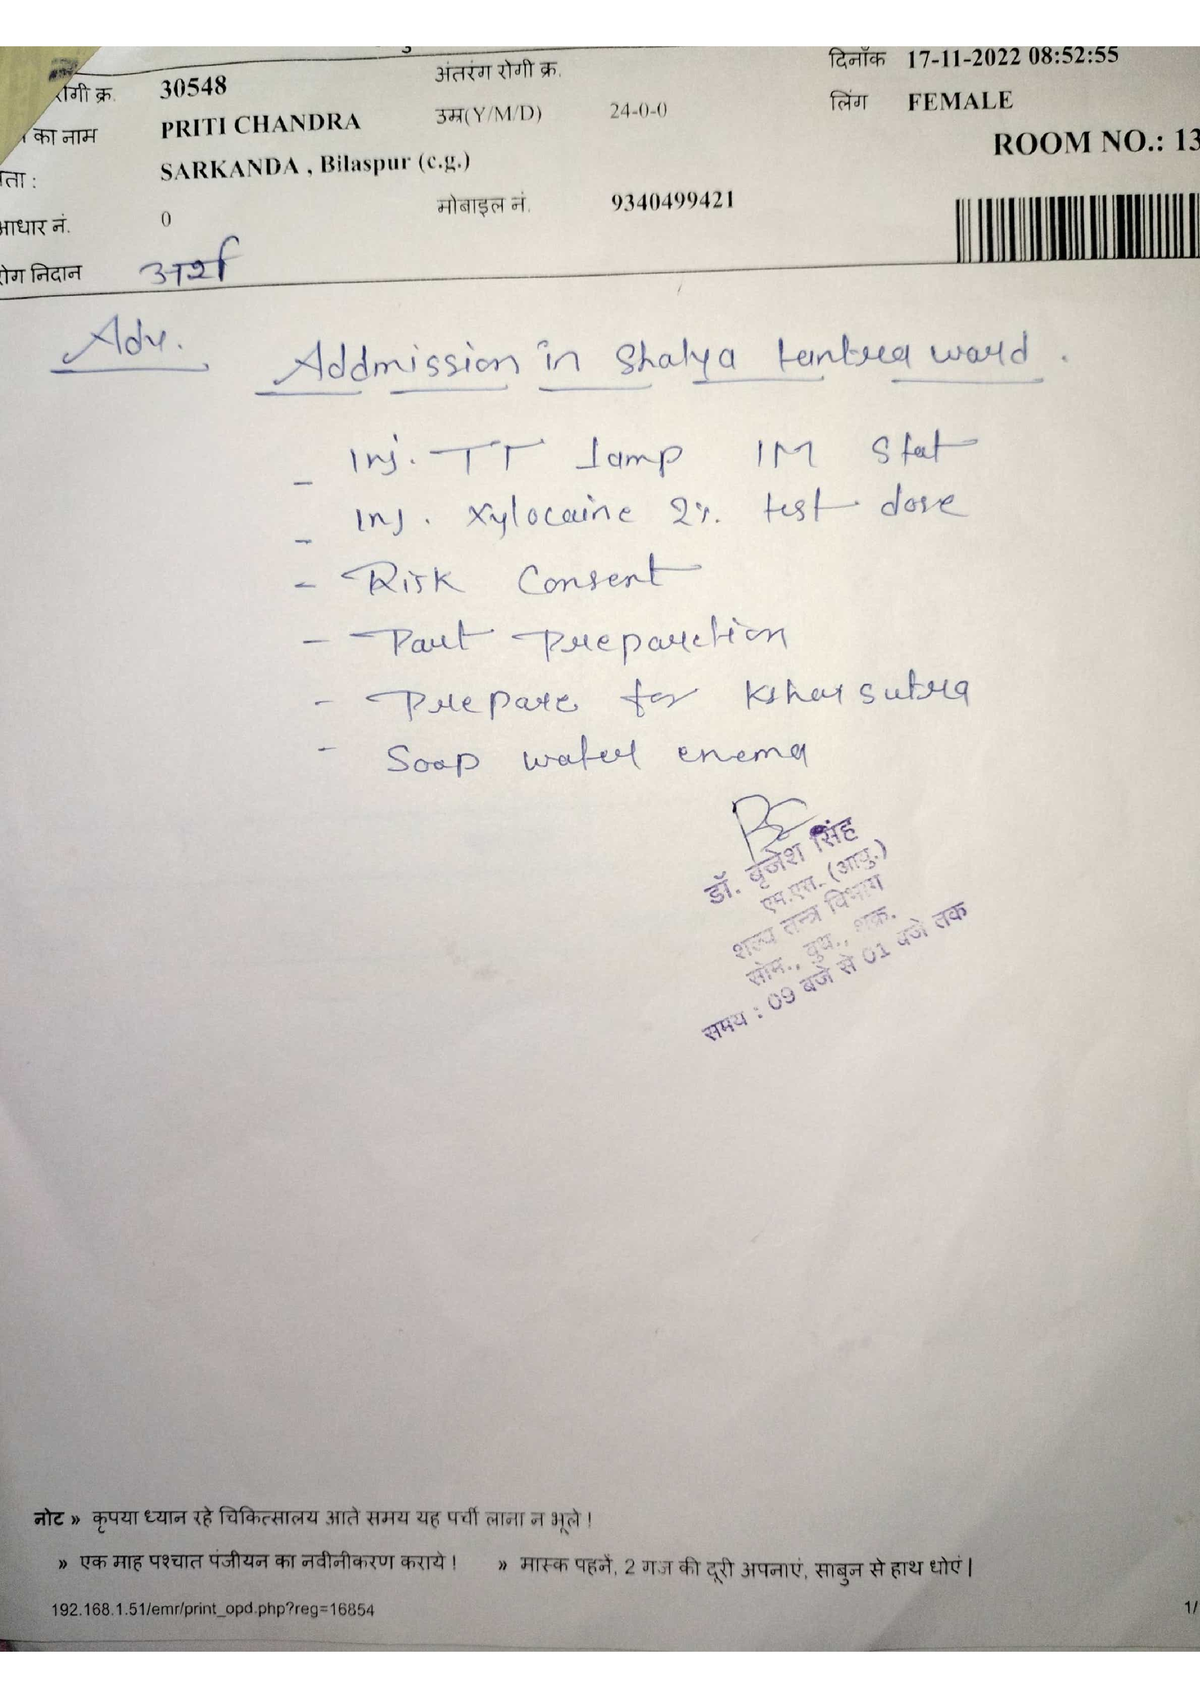 रोगी क्र. 30548 अंतरंग रोगी क्र. दिनाँक 17-11-2022 08:52:55
का नाम PRITI CHANDRA उम्र(Y/M/D) 24-0-0 लिंग FEMALE
ROOM NO.: 13
पता : SARKANDA , Bilaspur (c.g.)
आधार नं. 0 मोबाइल नं. 9340499421
रोग निदान अर्श
Adv. Addmission in Shalya tantra ward .
- Inj. TT 1amp IM Stat
- Inj. Xylocaine 2% test dose
- Risk Consent
- Part Preparation
- Prepare for Kshar sutra
- Soap water enema
डॉ. बृजेश सिंह
एम.एस. (आयु.)
शल्य तन्त्र विभाग
सोम., बुध., शुक्र.
समय : 09 बजे से 01 बजे तक
नोट » कृपया ध्यान रहे चिकित्सालय आते समय यह पर्ची लाना न भूले !
» एक माह पश्चात पंजीयन का नवीनीकरण कराये ! » मास्क पहनें, 2 गज की दूरी अपनाएं, साबुन से हाथ धोएं |
192.168.1.51/emr/print_opd.php?reg=16854 1/